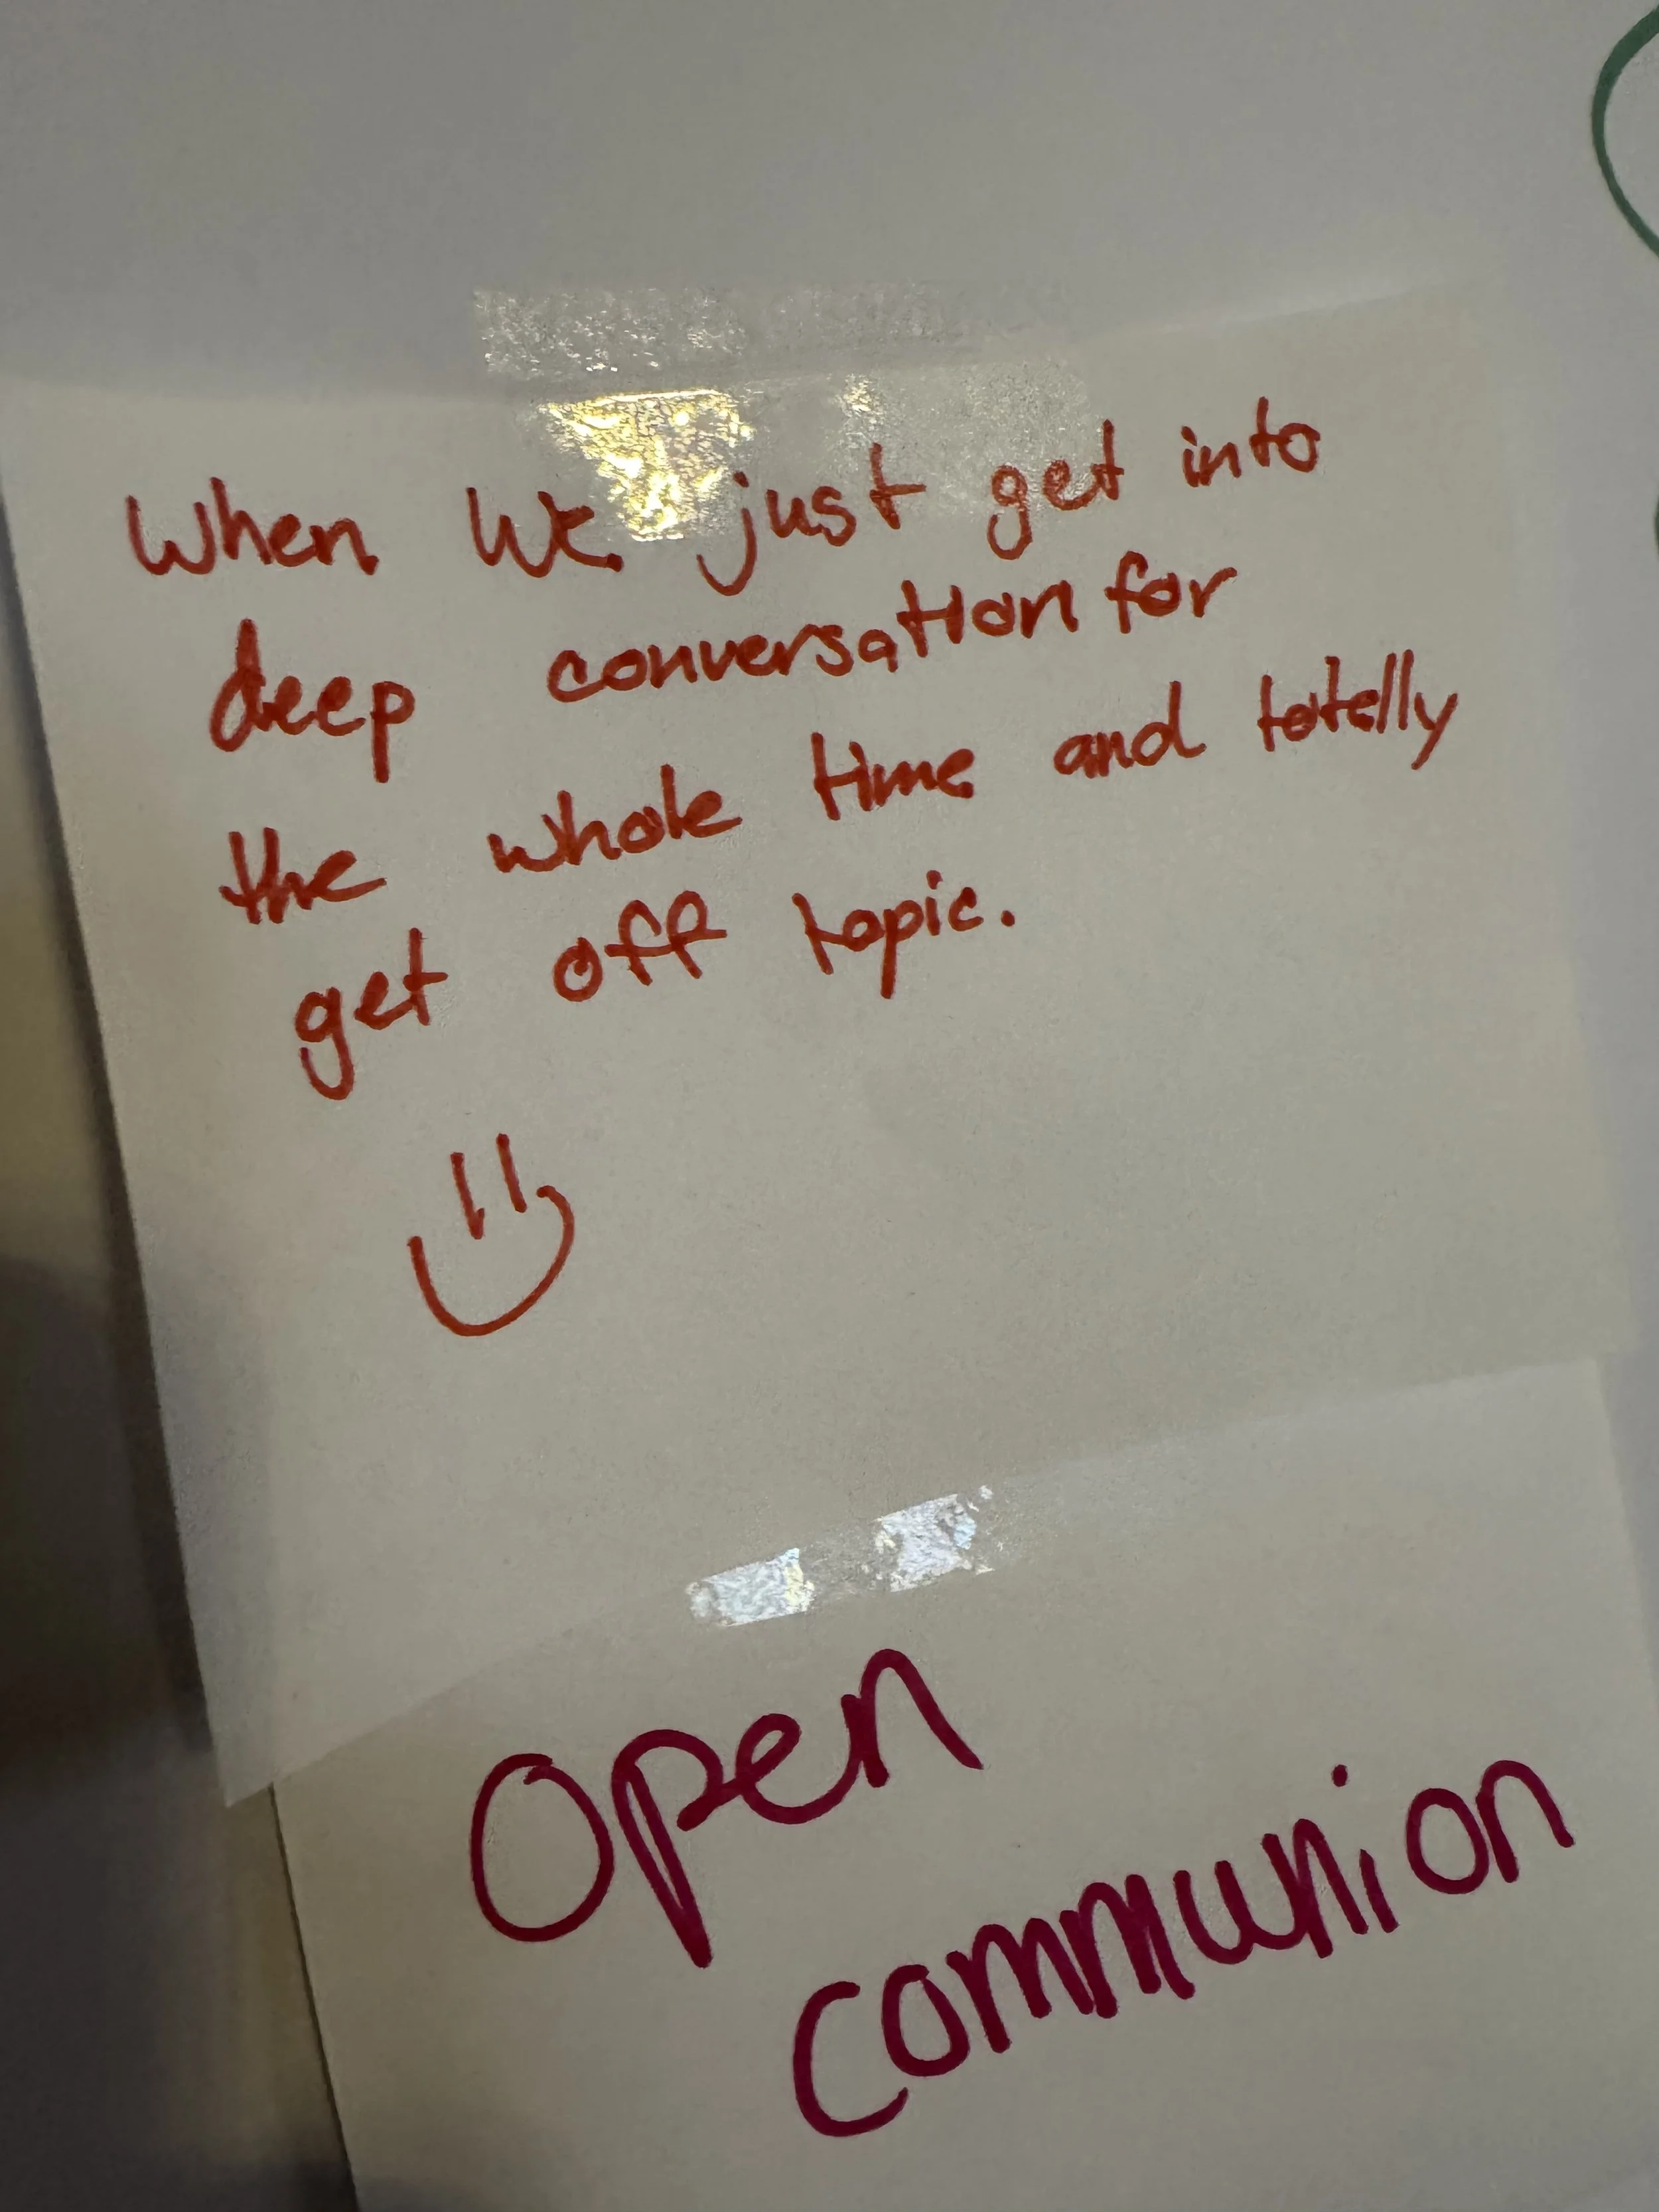 When We just get into
deep conversation for
the whole time and totally
get off topic.
Open
communion